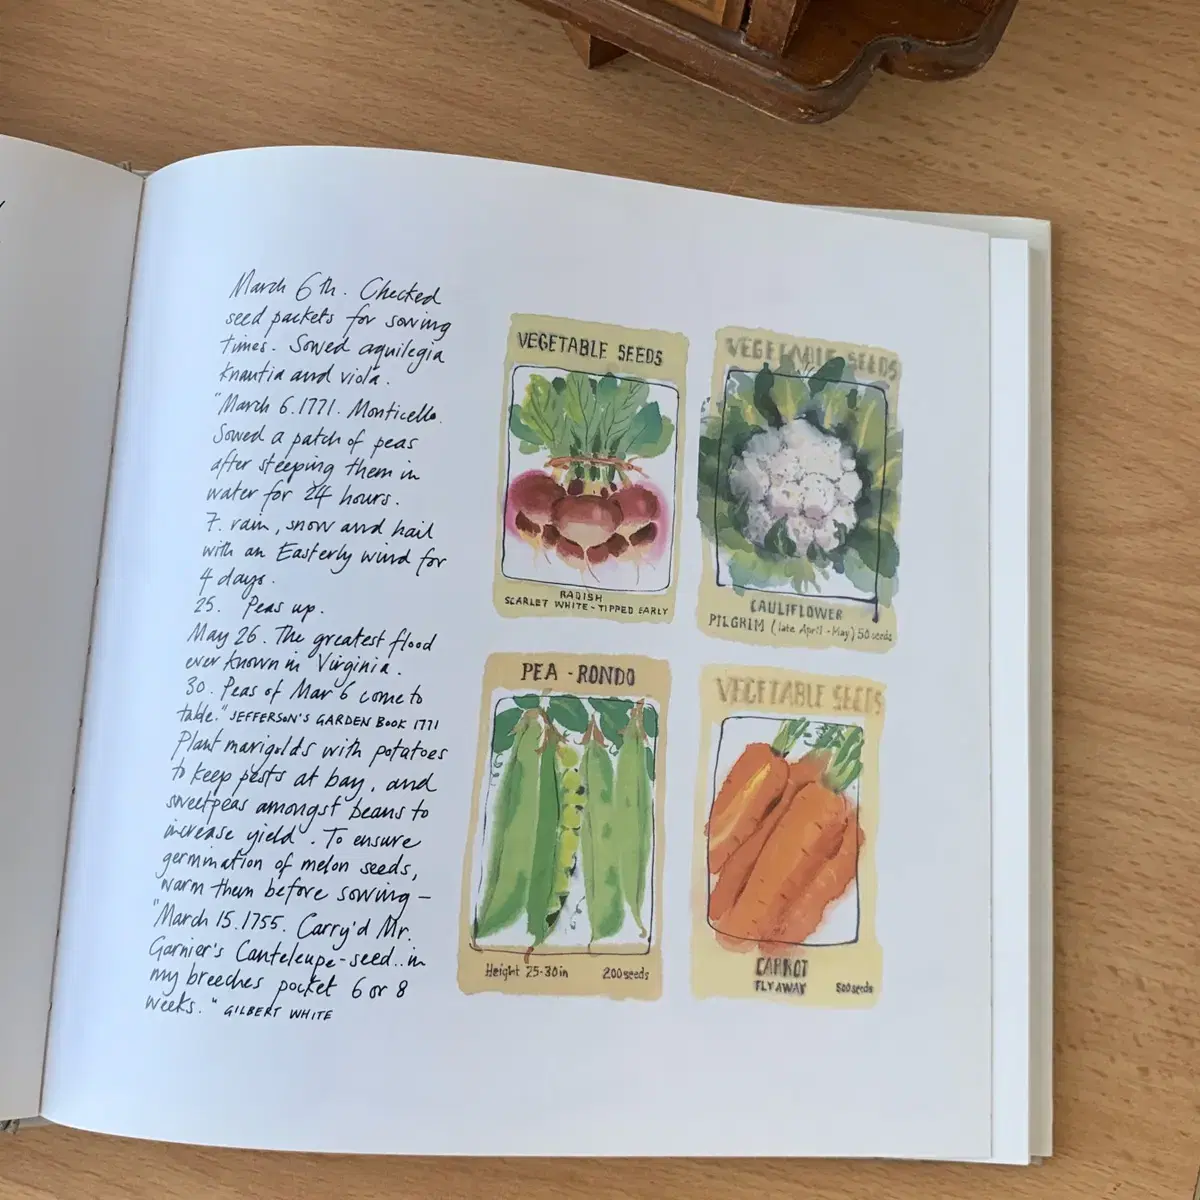 March 6th. Checked
seed packets for sowing
times. Sowed aquilegia
knautia and viola.
"March 6.1771. Monticello.
Sowed a patch of peas
after steeping them in
water for 24 hours.
7. rain, snow and hail
with an Easterly wind for
4 days.
25. Peas up.
May 26. The greatest flood
ever known in Virginia.
30. Peas of Mar 6 come to
table." JEFFERSON'S GARDEN BOOK 1771
Plant marigolds with potatoes
to keep pests at bay, and
sweetpeas amongst beans to
increase yield. To ensure
germination of melon seeds,
warm them before sowing –
"March 15.1755. Carry'd Mr.
Garnier's Canteleupe-seed..in
my breeches pocket 6 or 8
weeks." GILBERT WHITE
VEGETABLE SEEDS
RADISH
SCARLET WHITE-TIPPED EARLY
VEGETABLE SEEDS
CAULIFLOWER
PILGRIM (late April-May) 50 seeds
PEA-RONDO
Height 25-30in 200 seeds
VEGETABLE SEEDS
CARROT
FLYAWAY 500 seeds